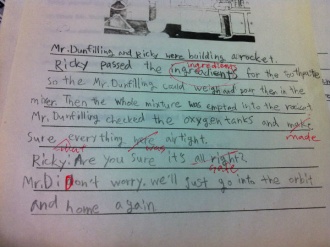 Mr. Dunfilling and Ricky were building a rocket.
ingredients
Ricky passed the ingredients for the
so the Mr. Dunfilling could weigh and pour then in the
mixer. Then the whole mixture was emptied into the
Mr. Dunfilling checked the oxygen tanks and make
sure everything were airtight. made
that was
Ricky: Are you sure it's all right?
safe
Mr. D: Don't worry. we'll just go into the orbit
and home again